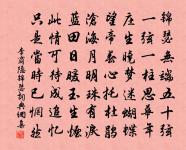 錦瑟無端五十弦
一弦一柱思華年
莊生曉夢迷蝴蝶
望帝春心托杜鵑
滄海月明珠有淚
藍田日暖玉生煙
此情可待成追憶
只是當時已惘然
李商隱錦瑟詞典網書